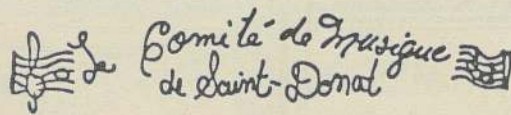 Le Comité de Musique
de Saint-Donat